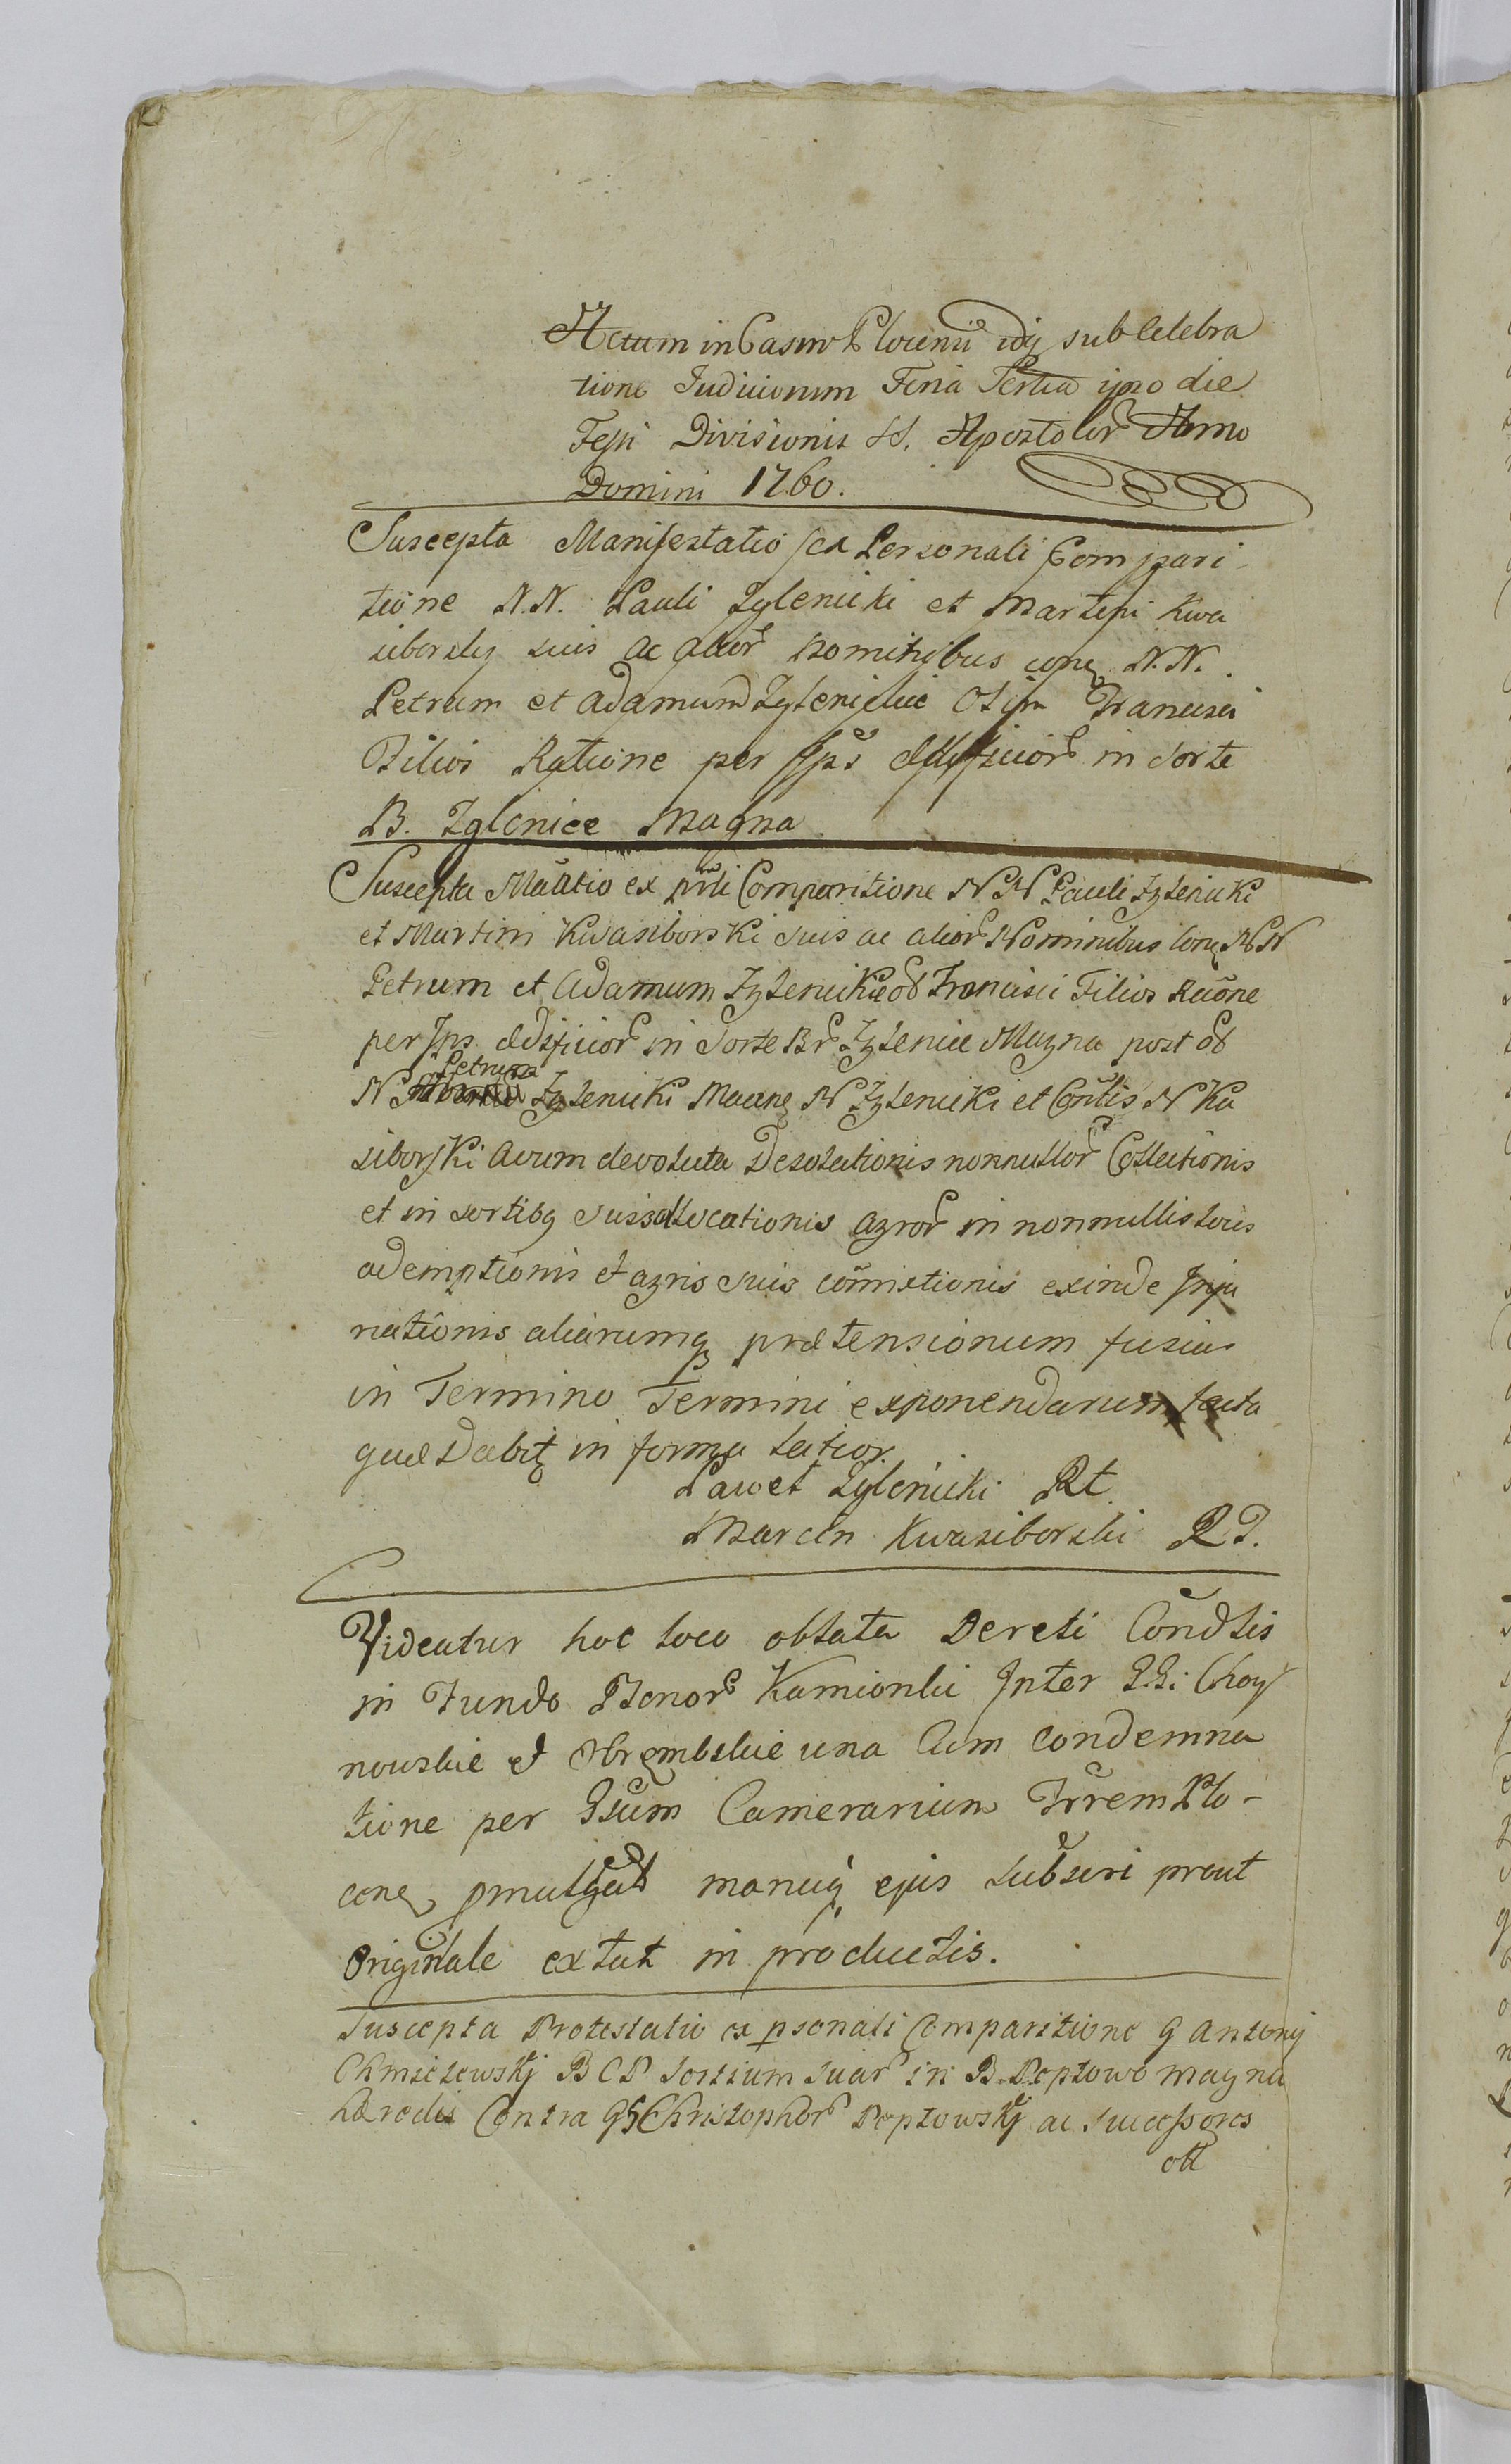 Actum in Castro Plocensi idq sub Celebra
tione Judiciorum Feria Tertia ipso die
Festi Divisionis SS. Apostolor Anno
Domini 1760.
Suscepta Manifestatio ex Personali Compari
tione N.N. Pauli Zglenicki et Martini Kwa
siborsky suis ac alior Nominibus conq N.N.
Petrum et Adamum Zglenickie Olim Francisci
Filios Ratione per Ips Ædificior in Sorte
B. Zglenice Magna
Suscepta Maãtio ex prli Comparitione NN Pauli Zglenicki
et Martini Kwasiborski suis ac alior Nominibus Conq NN
Petrum et Adamum Zglenickie ol Francisci Filios Raõne
per Ips Ædificior in Sorte Br Zglenice Magna post ol
N Petrum Zglenicki Maanq N Zglenicki et Contis N Kwa
siborski Avum devoluta Desolationis nonnullor Collectionis
et in sortibq suis allocationis Agror in nonnullis locis
ademptionis et agris suis cõmixtionis exinde Inju
riationis aliarumq prætensionum fusius
in Termino Termini exponendarum facta
quæ Dabitq in forma latior.
Paweł Zglenicki Rt
Marcin Kwasiborski RP.
Videatur hoc loco oblata Dereti Condlis
in Fundo Bonor Kamionki Inter GG. Choy
nowskie et Obrembskie una Cum Condemna
tione per Gsum Camerarium Trrem Plo-
cenq pmulgat manuq ejus Subscri prout
Originale extat in productis.
Suscepta Protestatio ex psonali Comparitione G Antonij
Chmielewskij BCP Sortium Suar in B Peptowo magna
hæredis Contra GG Christophor Peptowskij ac Successores
oll